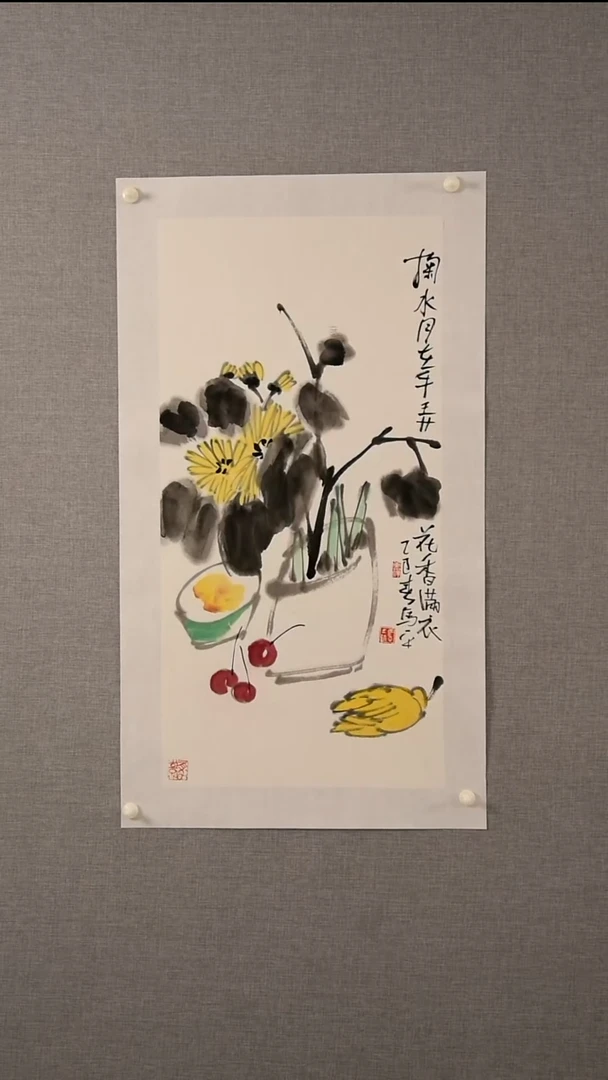 掬水月在手弄
花香满衣
乙巳春马平